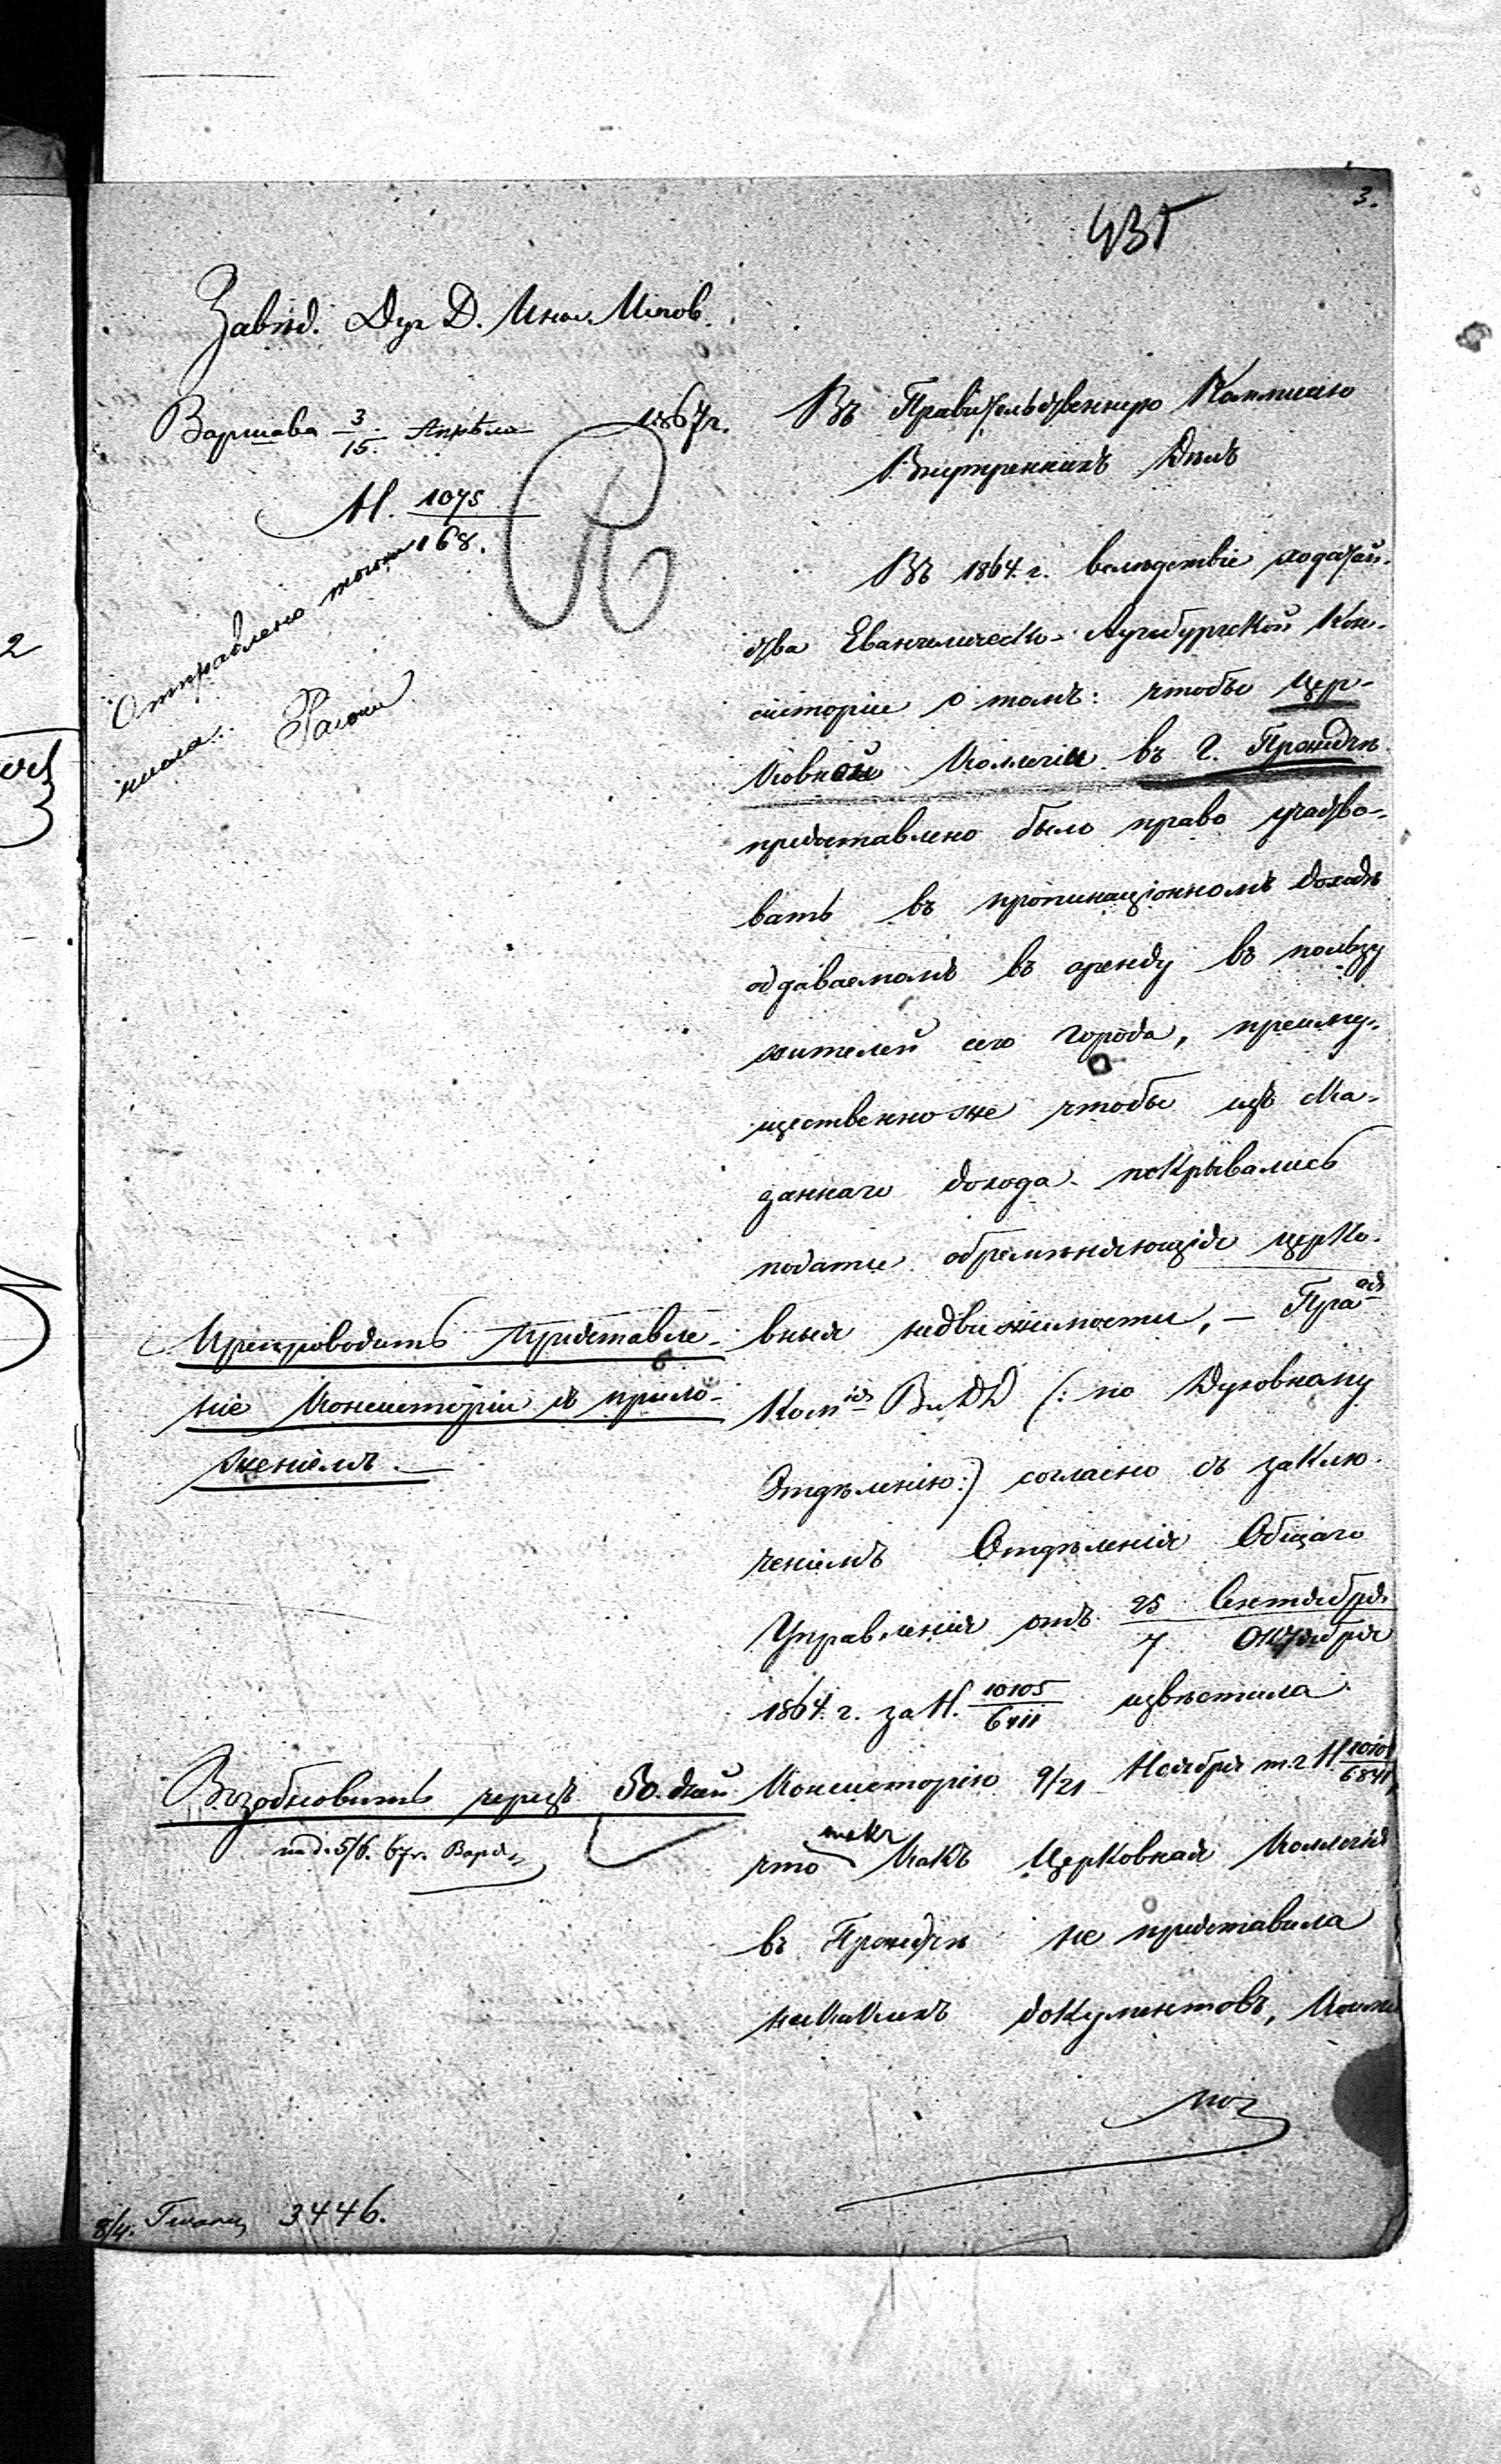 3.
437
Завѣд. Дух Д. Инос. Испов.
Варшава 3/15. Апрѣля 1867 г.
N. 1075/168.
Отправлено тогоже
числа.
Въ Правительственную Коммисію
Внутреннихъ Дѣлъ
Въ 1864. г. вслѣдствіе ходатай-
ства Евангелическо-Аугсбургской Кон-
систоріи о томъ: чтобы Цер-
ковной Коллегіи въ г.
предоставлено было право участво-
вать въ пропинаціонномъ доходѣ
отдаваемомъ въ аренду въ пользу
жителей сего города, преиму-
щественно же чтобы изъ ска-
заннаго дохода покрывались
подати обременяющія церко-
вныя недвижимости, — Прав
Ком ВнДД (: по Духовному
Отдѣленію:) согласно съ заклю-
ченіемъ Отдѣленія Общаго
Управленія отъ 25 Сентября/7 Октября
1864. г. за N. 10105/6811 извѣстила
Консисторію 9/21 Ноября т. г. N
что такъ какъ Церковная Коллегія
въ не представила
никакихъ документовъ,
Препроводить представле-
ніе Консисторіи съ прило-
женіемъ. —
Возобновить черезъ 50. дней
5/6. 67 г.
8/4. 3446.